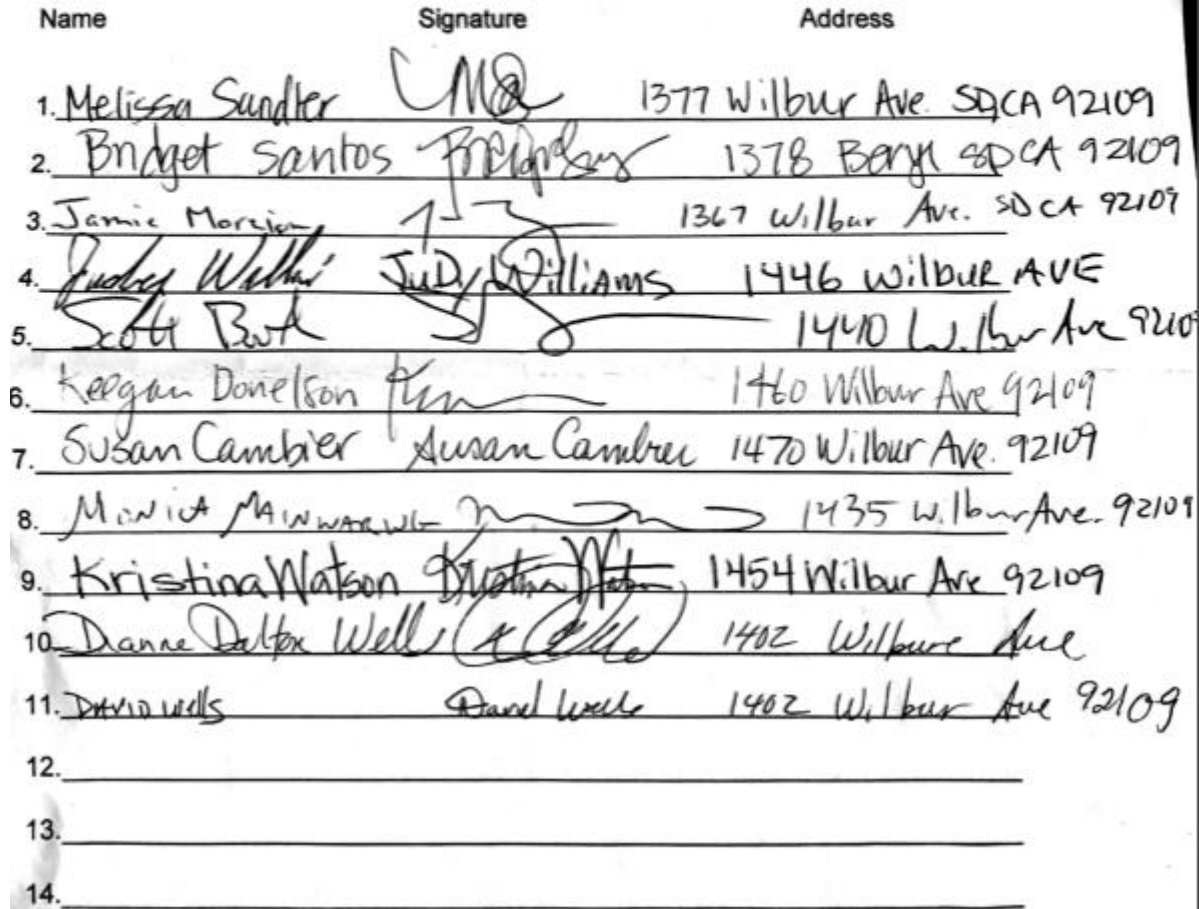 Name Signature Address
1. Melissa Sandler 1377 Wilbur Ave. SD, CA 92109
2. Bridget Santos 1378 Beryl SD CA 92109
3. Jamie 1367 Wilbur Ave. SD CA 92109
4. Judy Williams 1446 Wilbur AVE
5. Scott 1440 Wilbur Ave 92109
6. Keegan Donelson 1460 Wilbur Ave 92109
7. Susan Cambier Susan Cambier 1470 Wilbur Ave. 92109
8. MONICA MAINWARING 1435 Wilbur Ave. 92109
9. Kristina Watson Kristina 1454 Wilbur Ave 92109
10. Dianne Dalton Wells 1402 Wilbure Ave
11. DAVID Wells David Wells 1402 Wilbur Ave 92109
12.
13.
14.